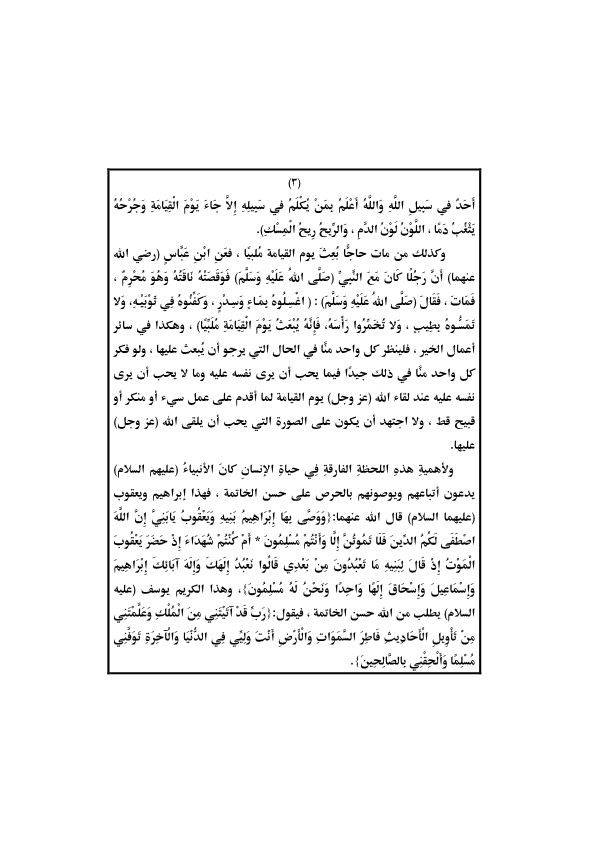 (٣)
أَحَدٌ في سَبِيلِ اللَّهِ وَاللَّهُ أَعْلَمُ بِمَنْ يُكْلَمُ في سَبِيلِهِ إِلاَّ جَاءَ يَوْمَ الْقِيَامَةِ وَجُرْحُهُ
يَثْعُبُ دَمًا ، اللَّوْنُ لَوْنُ الدَّمِ ، وَالرِّيحُ رِيحُ الْمِسْكِ).
وكذلك من مات حاجًّا بُعِثَ يوم القيامة مُلبيًا ، فعَنِ ابْنِ عَبَّاسٍ (رضي الله
عنهما) أَنَّ رَجُلًا كَانَ مَعَ النَّبِيِّ (صَلَّى اللهُ عَلَيْهِ وَسَلَّمَ) فَوَقَصَتْهُ نَاقَتُهُ وَهُوَ مُحْرِمٌ ،
فَمَاتَ ، فَقَالَ (صَلَّى اللهُ عَلَيْهِ وَسَلَّمَ) : ( اغْسِلُوهُ بِمَاءٍ وَسِدْرٍ ، وَكَفِّنُوهُ فِي ثَوْبَيْهِ، وَلا
تَمَسُّوهُ بِطِيبٍ ، وَلا تُخَمِّرُوا رَأْسَهُ، فَإِنَّهُ يُبْعَثُ يَوْمَ الْقِيَامَةِ مُلَبِّيًا) ، وهكذا في سائر
أعمال الخير ، فلينظر كل واحد منَّا في الحال التي يرجو أن يُبعث عليها ، ولو فكر
كل واحد منَّا في ذلك جيدًا فيما يحب أن يرى نفسه عليه وما لا يحب أن يرى
نفسه عليه عند لقاء الله (عز وجل) يوم القيامة لما أقدم على عمل سيء أو منكر أو
قبيح قط ، ولا اجتهد أن يكون على الصورة التي يحب أن يلقى الله (عز وجل)
عليها.
ولأهميةِ هذهِ اللحظةِ الفارقةِ فِي حياةِ الإنسانِ كانَ الأنبياءُ (عليهم السلام)
يدعون أتباعهم ويوصونهم بالحرص على حسن الخاتمة ، فهذا إبراهيم ويعقوب
(عليهما السلام) قال الله عنهما:{وَوَصَّى بِهَا إِبْرَاهِيمُ بَنِيهِ وَيَعْقُوبُ يَابَنِيَّ إِنَّ اللَّهَ
اصْطَفَى لَكُمُ الدِّينَ فَلَا تَمُوتُنَّ إِلَّا وَأَنْتُمْ مُسْلِمُونَ * أَمْ كُنْتُمْ شُهَدَاءَ إِذْ حَضَرَ يَعْقُوبَ
الْمَوْتُ إِذْ قَالَ لِبَنِيهِ مَا تَعْبُدُونَ مِنْ بَعْدِي قَالُوا نَعْبُدُ إِلَهَكَ وَإِلَهَ آبَائِكَ إِبْرَاهِيمَ
وَإِسْمَاعِيلَ وَإِسْحَاقَ إِلَهًا وَاحِدًا وَنَحْنُ لَهُ مُسْلِمُونَ}، وهذا الكريم يوسف (عليه
السلام) يطلب من الله حسن الخاتمة ، فيقول:{رَبِّ قَدْ آتَيْتَنِي مِنَ الْمُلْكِ وَعَلَّمْتَنِي
مِنْ تَأْوِيلِ الْأَحَادِيثِ فَاطِرَ السَّمَوَاتِ وَالْأَرْضِ أَنْتَ وَلِيِّي فِي الدُّنْيَا وَالْآخِرَةِ تَوَفَّنِي
مُسْلِمًا وَأَلْحِقْنِي بِالصَّالِحِينَ}.